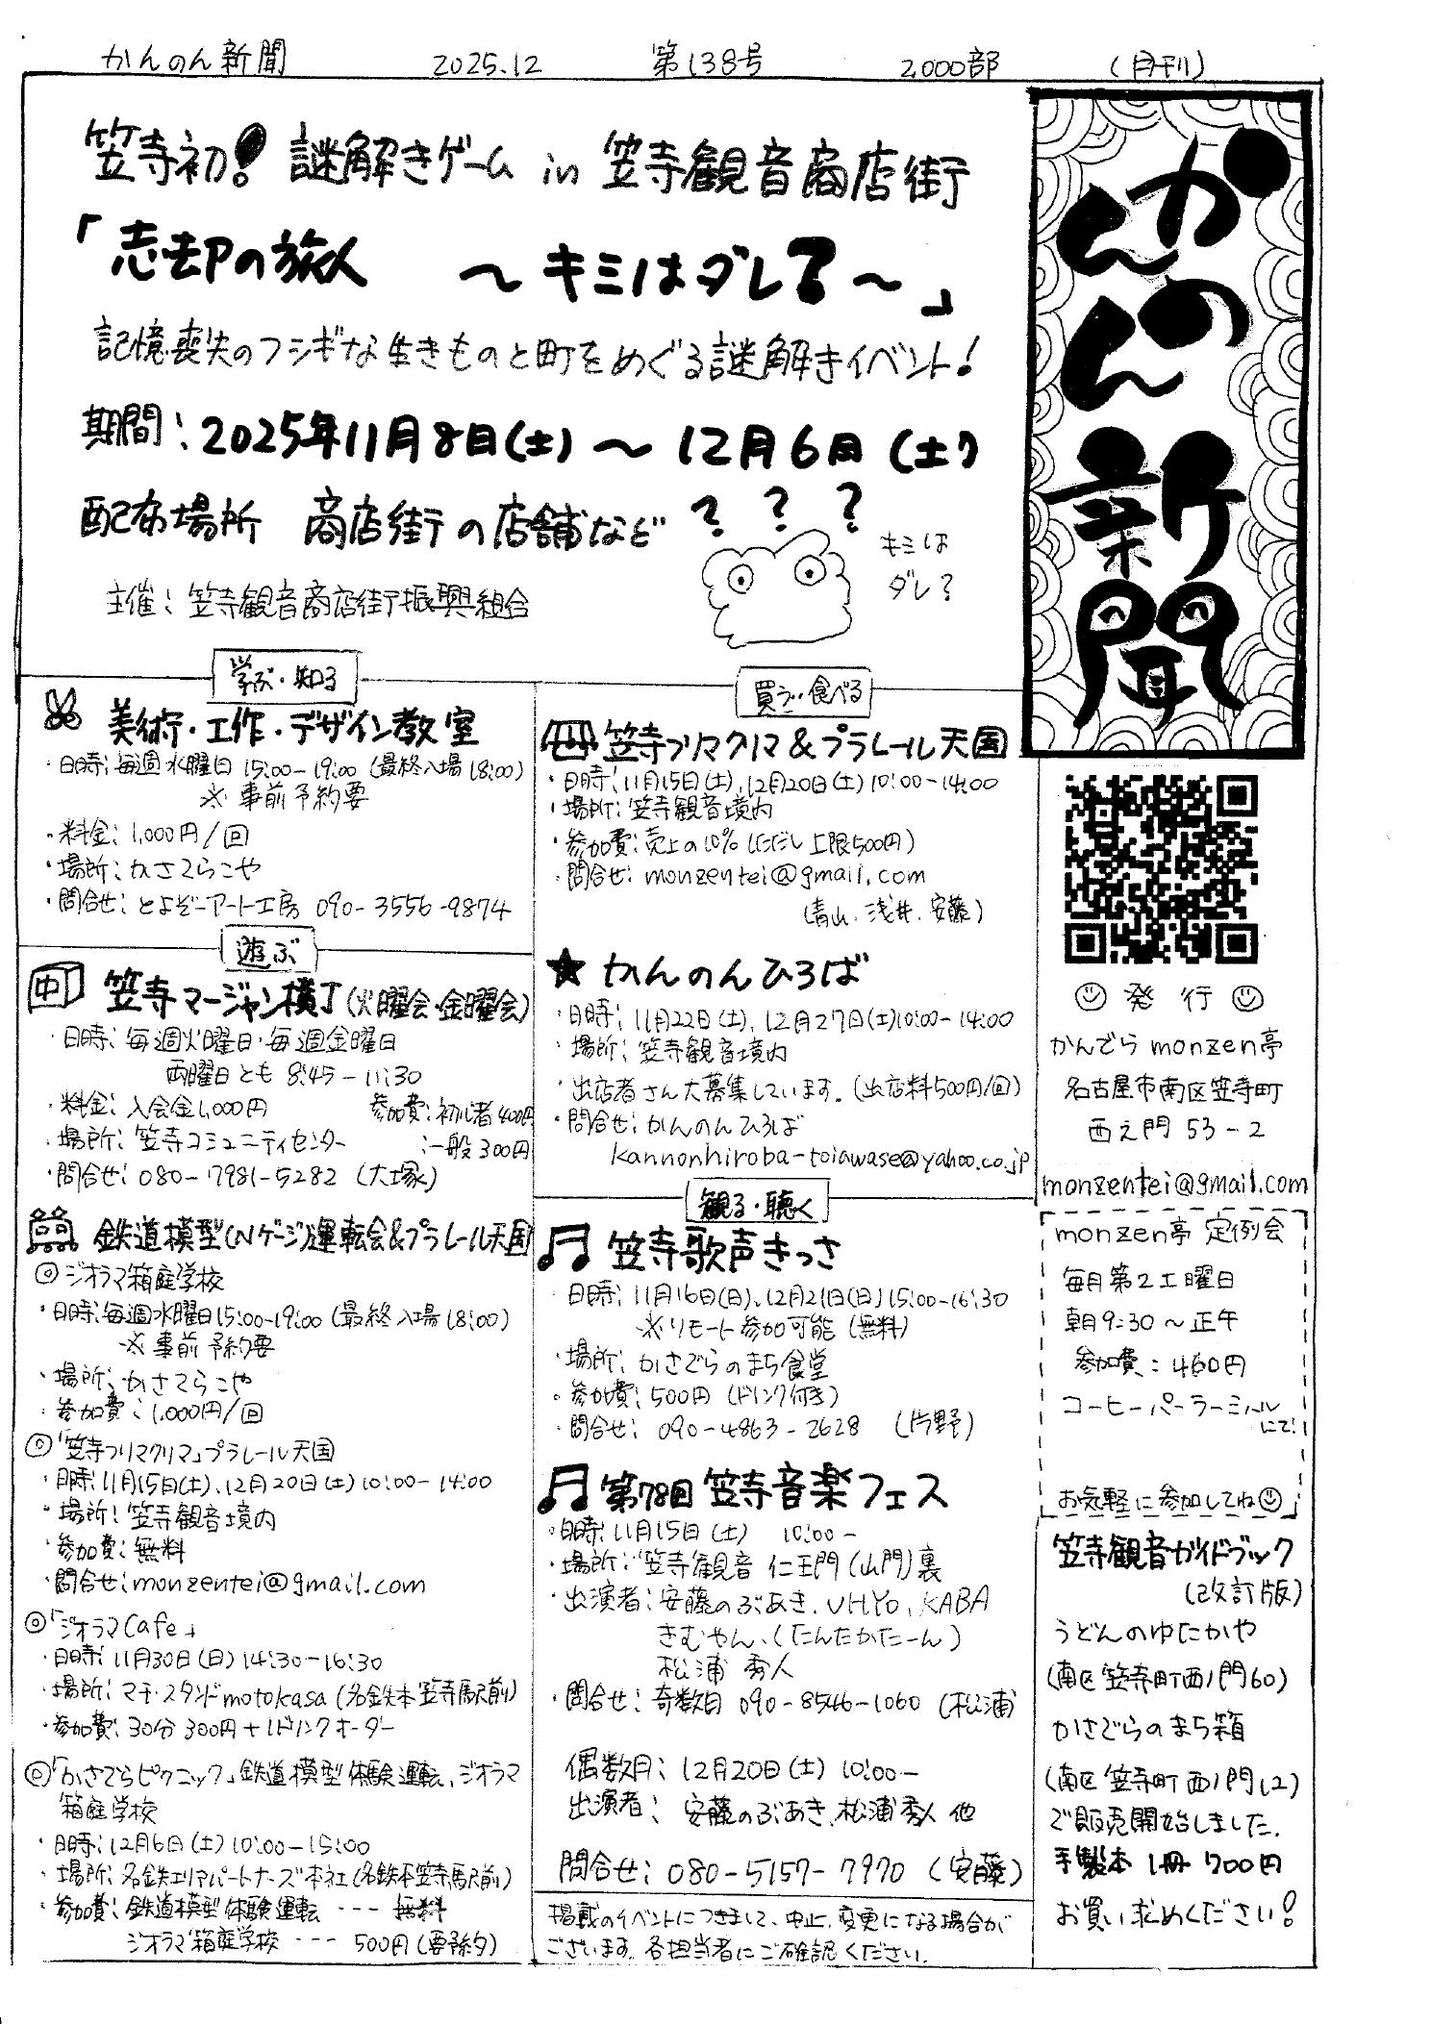 かんのん新聞 2025.12 第138号 2,000部 (月刊)
笠寺初! 謎解きゲーム in 笠寺観音商店街
「志却の旅人 ～キミはダレ?～」
記憶喪失のフシギな生きものと町をめぐる謎解きイベント!
期間:2025年11月8日(土)～12月6日(土)
配布場所 商店街の店舗など
? ? ?
キミは
ダレ?
主催:笠寺観音商店街振興組合
かんのん新聞
学ぶ・知る
美術・工作・デザイン教室
・日時:毎週水曜日 15:00-19:00 (最終入場18:00)
※事前予約要
・料金:1,000円/回
・場所:かさてらこや
・問合せ:とよぞーアート工房 090-3556-9874
遊ぶ
中
笠寺マージャン横丁(火曜会・金曜会)
・日時:毎週火曜日・毎週金曜日
両曜日とも 8:45-11:30
・料金:入会金1,000円 参加費:初心者400円
・場所:笠寺コミュニティセンター :一般300円
・問合せ:080-7981-5282 (大塚)
鉄道模型(Nゲージ)運転会&プラレール天国
◎ジオラマ箱庭学校
・日時:毎週水曜日15:00-19:00 (最終入場18:00)
※事前予約要
・場所:かさてらこや
・参加費:1,000円/回
◎「笠寺フリマクリマ」プラレール天国
・日時:11月15日(土)、12月20日(土)10:00-14:00
・場所:笠寺観音境内
・参加費:無料
・問合せ:monzentei@gmail.com
◎「ジオラマCafe」
・日時:11月30日(日)14:30-16:30
・場所:マチ・スタンドmotokasa (名鉄本笠寺駅前)
・参加費:30分300円+1ドリンクオーダー
◎「かさでらピクニック」鉄道模型体験運転、ジオラマ
箱庭学校
・日時:12月6日(土)10:00-15:00
・場所:名鉄エリアパートナーズ本社(名鉄本笠寺駅前)
・参加費:鉄道模型体験運転 --- 無料
ジオラマ箱庭学校 --- 500円(要予約)
買う・食べる
笠寺フリマクリマ&プラレール天国
・日時:11月15日(土)、12月20日(土)10:00-14:00
・場所:笠寺観音境内
・参加費:売上の10%(ただし上限500円)
・問合せ:monzentei@gmail.com
(青山、浅井、安藤)
★かんのんひろば
・日時:11月22日(土)、12月27日(土)10:00-14:00
・場所:笠寺観音境内
・出店者さん大募集しています。(出店料500円/回)
・問合せ:かんのんひろば
kannonhiroba-toiawase@yahoo.co.jp
観る・聴く
笠寺歌声きっさ
・日時:11月16日(日)、12月21日(日)15:00-16:30
※リモート参加可能(無料)
・場所:かさでらのまち食堂
・参加費:500円(ドリンク付き)
・問合せ:090-4863-2628 (片野)
第78回 笠寺音楽フェス
・日時:11月15日(土) 10:00-
・場所:笠寺観音 仁王門(山門)裏
・出演者:安藤のぶあき、UHYO、KABA
きむやん、(たんたかたーん)
松浦 秀人
・問合せ:奇数月 090-8546-1060 (松浦)
偶数月:12月20日(土) 10:00-
出演者: 安藤のぶあき、松浦秀人 他
問合せ:080-5157-7970 (安藤)
掲載のイベントにつきまして、中止、変更になる場合が
ございます。各担当者にご確認ください。
発行
かんでらmonzen亭
名古屋市南区笠寺町
西之門53-2
monzentei@gmail.com
monzen亭 定例会
毎月第2土曜日
朝9:30～正午
参加費:460円
コーヒーパーラーミハル
にて!
お気軽に参加してね
笠寺観音ガイドブック
(改訂版)
うどんのゆたかや
(南区笠寺町西ノ門60)
かさでらのまち箱
(南区笠寺町西ノ門12)
ご販売開始しました。
手製本 1冊 700円
お買い求めください!